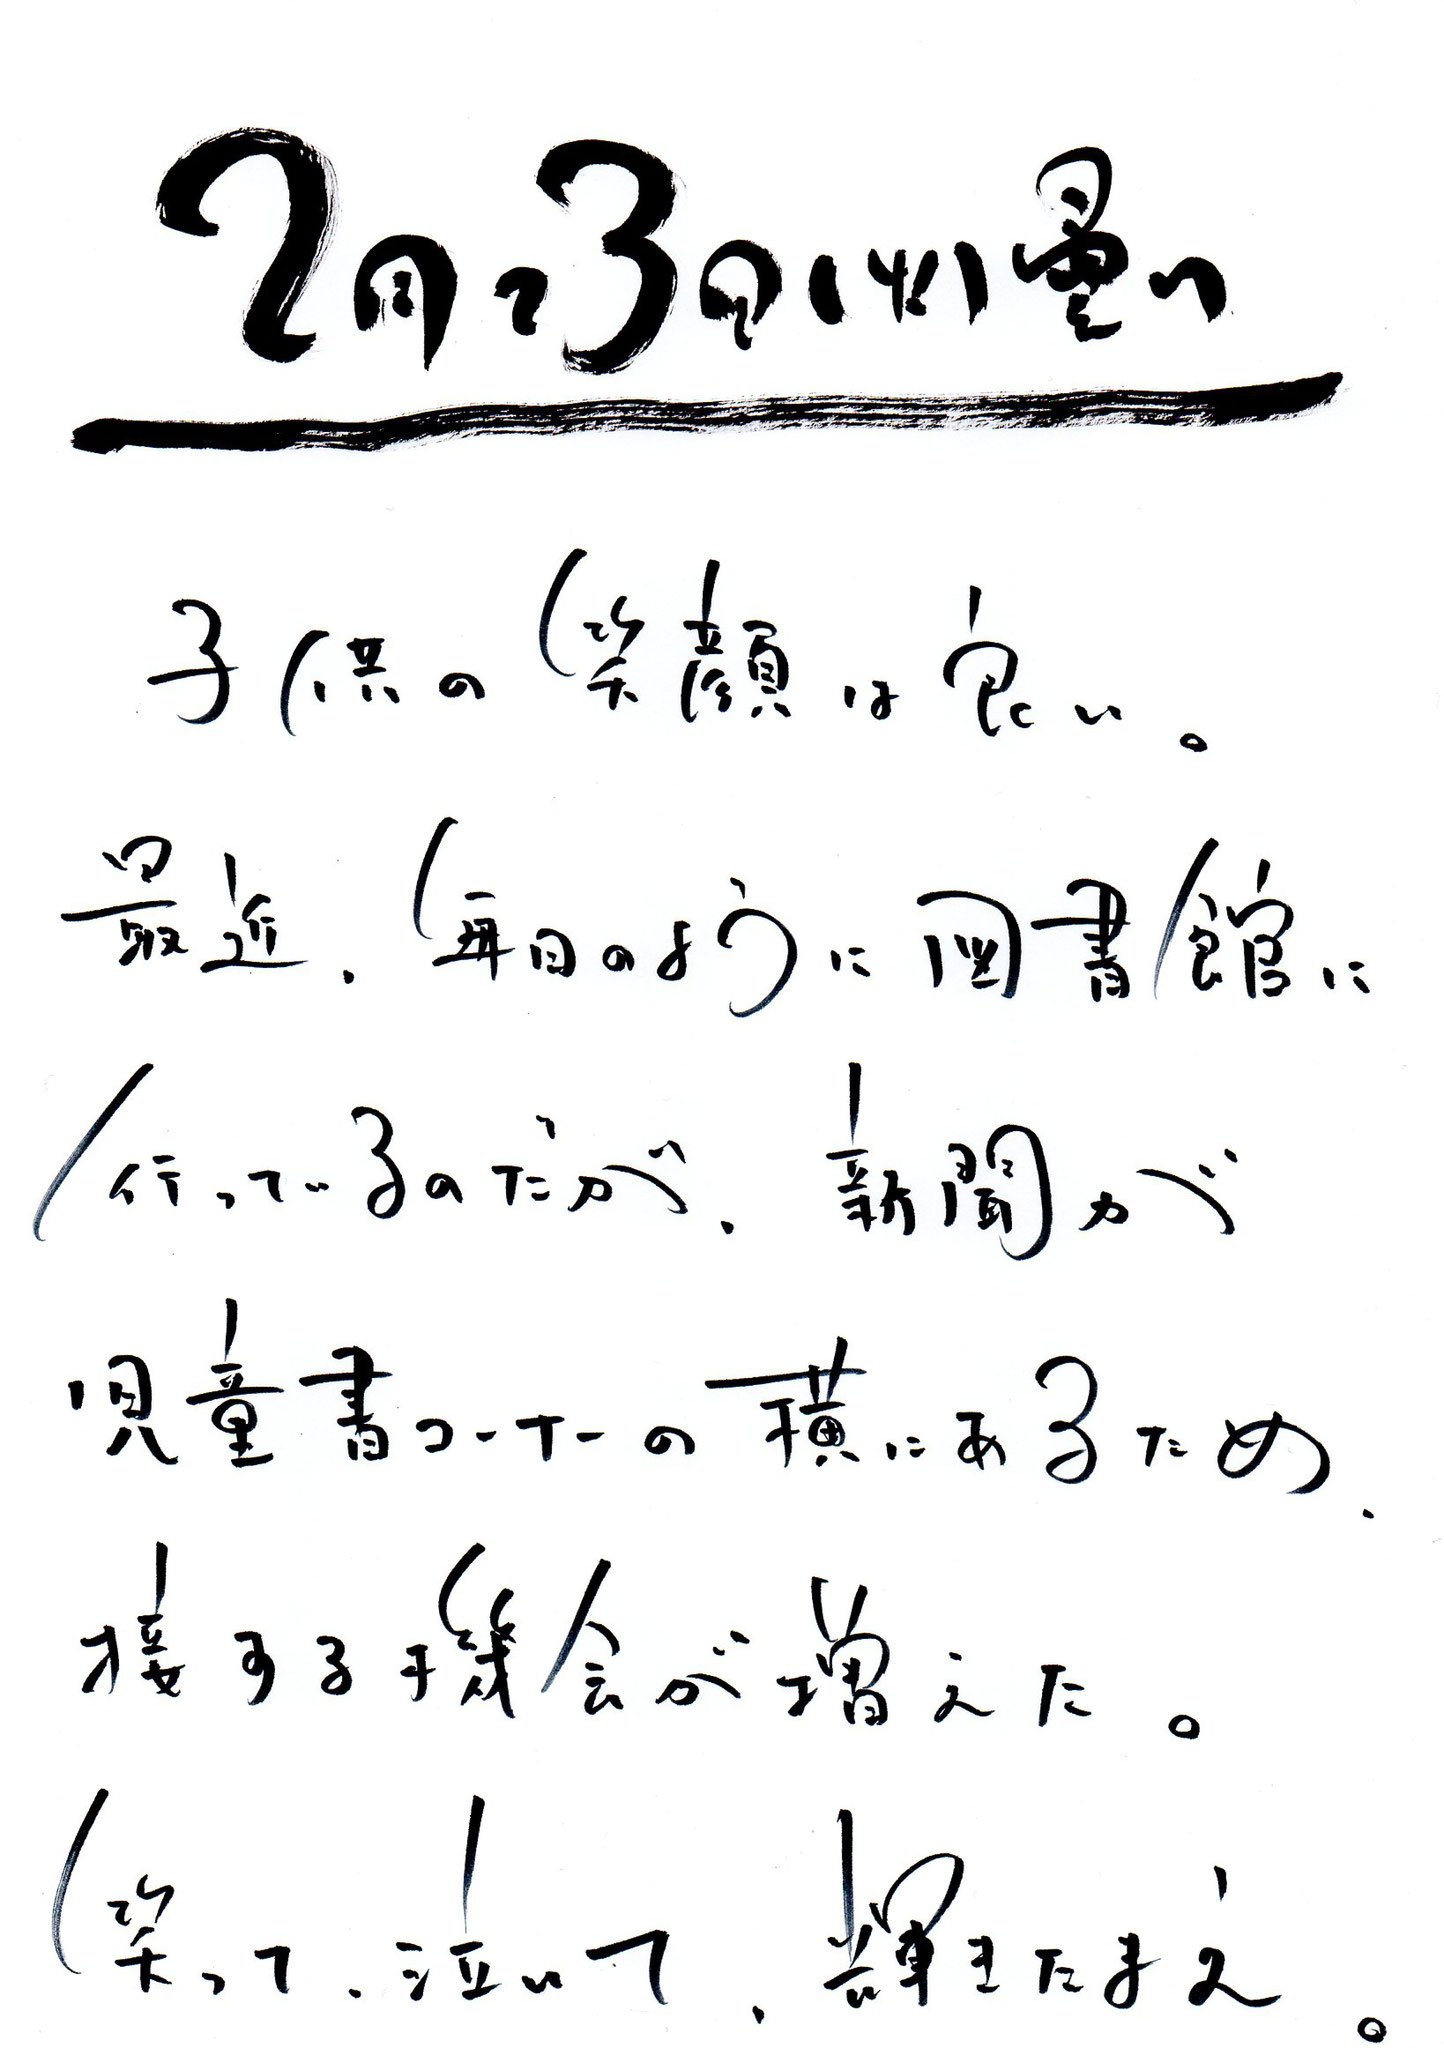 2月23日(火)曇り
子供の笑顔は良い。
最近、毎日のように図書館に
行っているのだが、新聞が
児童書コーナーの横にあるため、
接する機会が増えた。
笑って、泣いて、輝きたまえ。